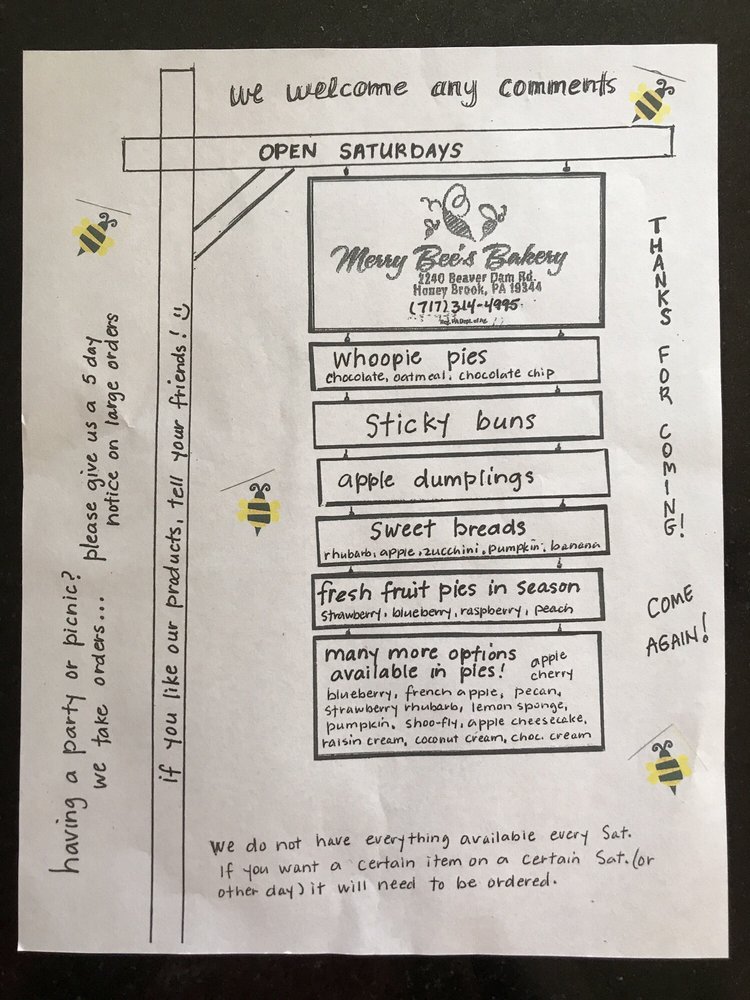 we welcome any comments
OPEN SATURDAYS
Merry Bee's Bakery
2240 Beaver Dam Rd.
Honey Brook, PA 19344
(717) 314-4995
whoopie pies
chocolate, oatmeal, chocolate chip
sticky buns
apple dumplings
sweet breads
rhubarb, apple, zucchini, pumpkin, banana
fresh fruit pies in season
strawberry, blueberry, raspberry, peach
many more options
available in pies!
apple
cherry
blueberry, french apple, pecan,
strawberry rhubarb, lemon sponge,
pumpkin, shoo-fly, apple cheesecake,
raisin cream, coconut cream, choc. cream
We do not have everything available every Sat.
If you want a certain item on a certain Sat. (or
other day) it will need to be ordered.
having a party or picnic?
we take orders... please give us a 5 day
notice on large orders
if you like our products, tell your friends!
THANKS FOR COMING!
COME
AGAIN!